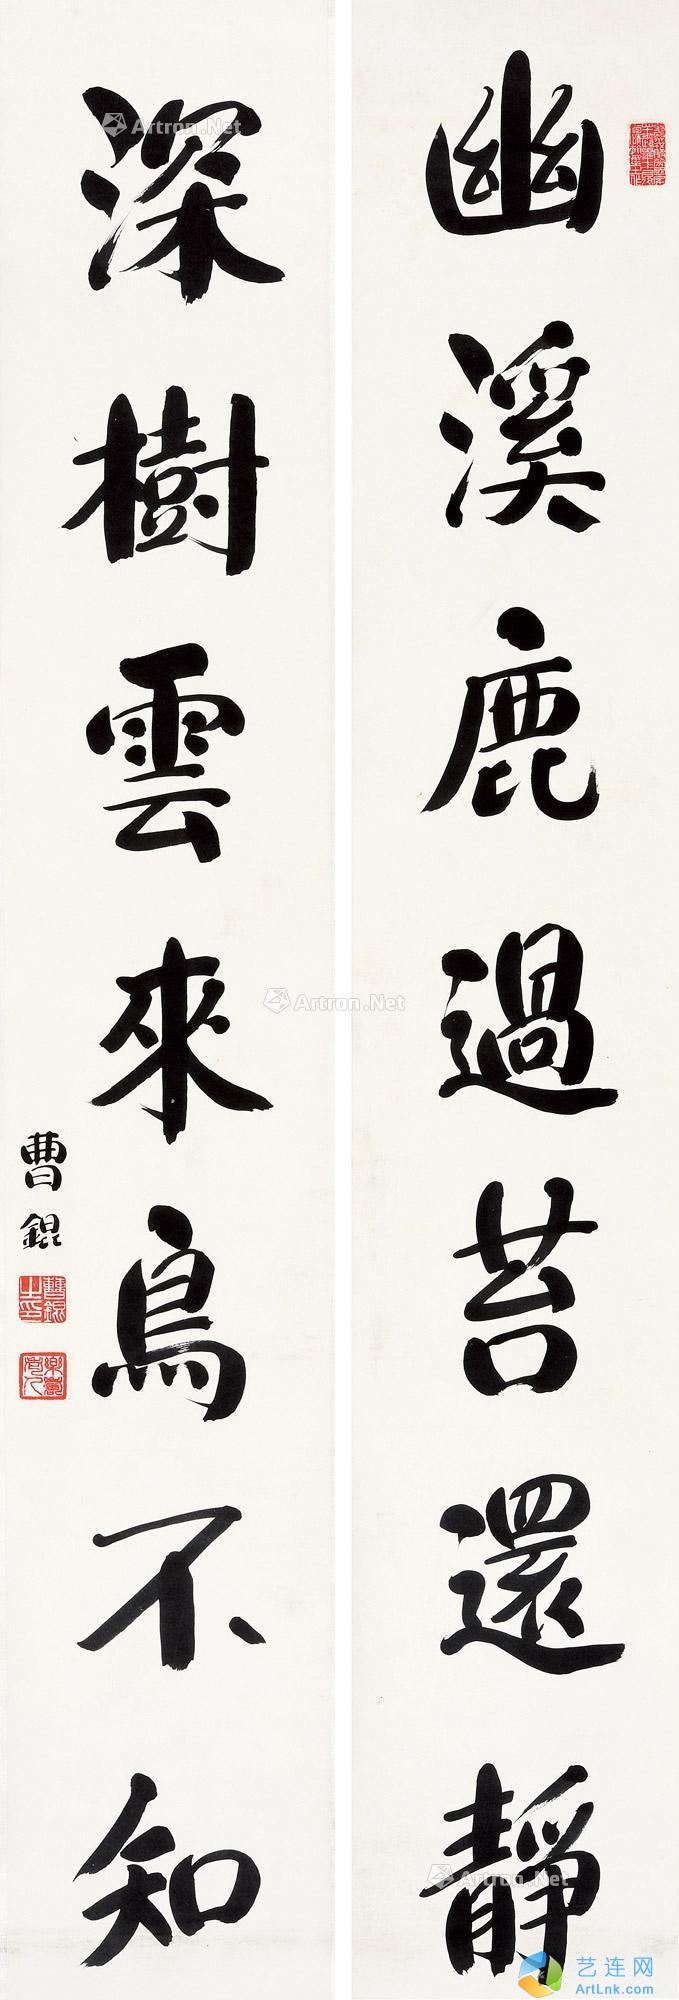 幽溪鹿過苔還靜
深樹雲來鳥不知
曹錕
曹錕之印
Artron.Net
Artron.Net
Artron.Net
艺连网
ArtLnk.com